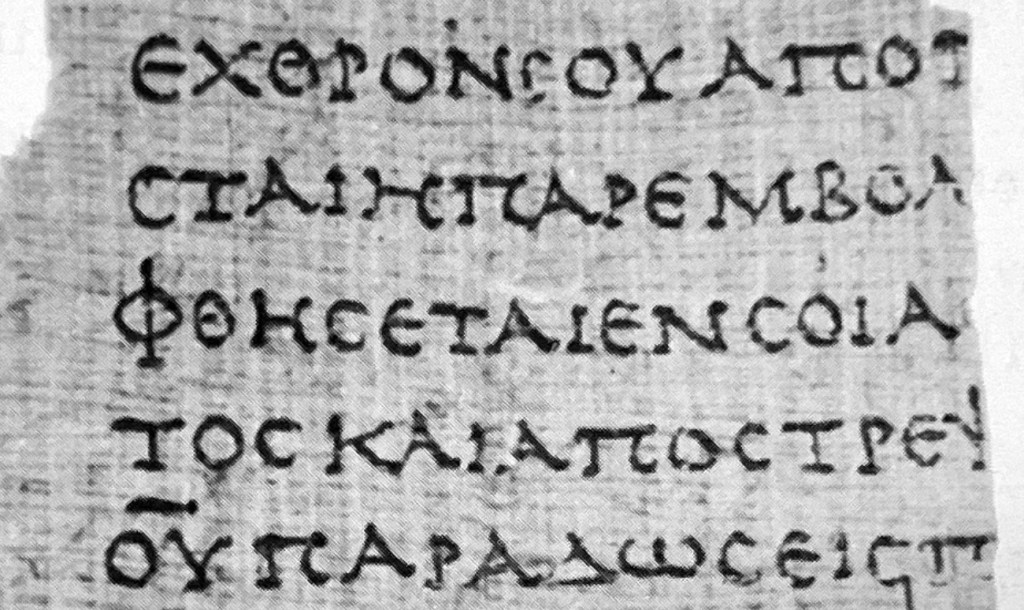 ΕΧΘΡΟΝϹΟΥΑΠΟΤ
ϹΤΑΙΗΠΑΡΕΜΒΟΛ
ΦΘΗϹΕΤΑΙΕΝϹΟΙΑ
ΤΟϹΚΑΙΑΠΟϹΤΡΕΨ
ΟΥΠΑΡΑΔΩϹΕΙϹΠ